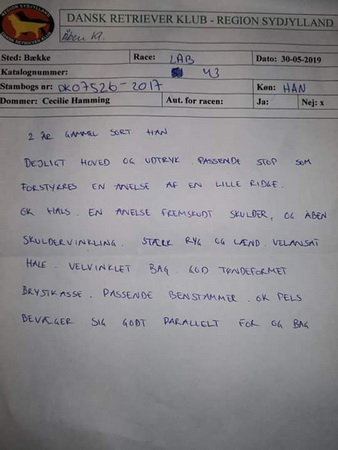 REGION SYDJYLLAND
DANSK RETRIEVER KLUB
DANSK RETRIEVER KLUB - REGION SYDJYLLAND
Åben Kl.
Sted: Bække Race: LAB Dato: 30-05-2019
Katalognummer: 43
Stambogs nr: DK07526-2017 Køn: HAN
Dommer: Cecilie Hamming Aut. for racen: Ja: Nej: x
2 ÅR GAMMEL SORT HAN
DEJLIGT HOVED OG UDTRYK. PASSENDE STOP SOM
FORSTYRRES EN ANELSE AF EN LILLE RIDGE.
OK HALS. EN ANELSE FREMSKUDT SKULDER, OG ÅBEN
SKULDERVINKLING. STÆRK RYG OG LÆND. VELANSAT
HALE. VELVINKLET BAG. GOD TØNDEFORMET
BRYSTKASSE. PASSENDE BENSTAMMER. OK PELS
BEVÆGER SIG GODT PARALLELT FOR OG BAG